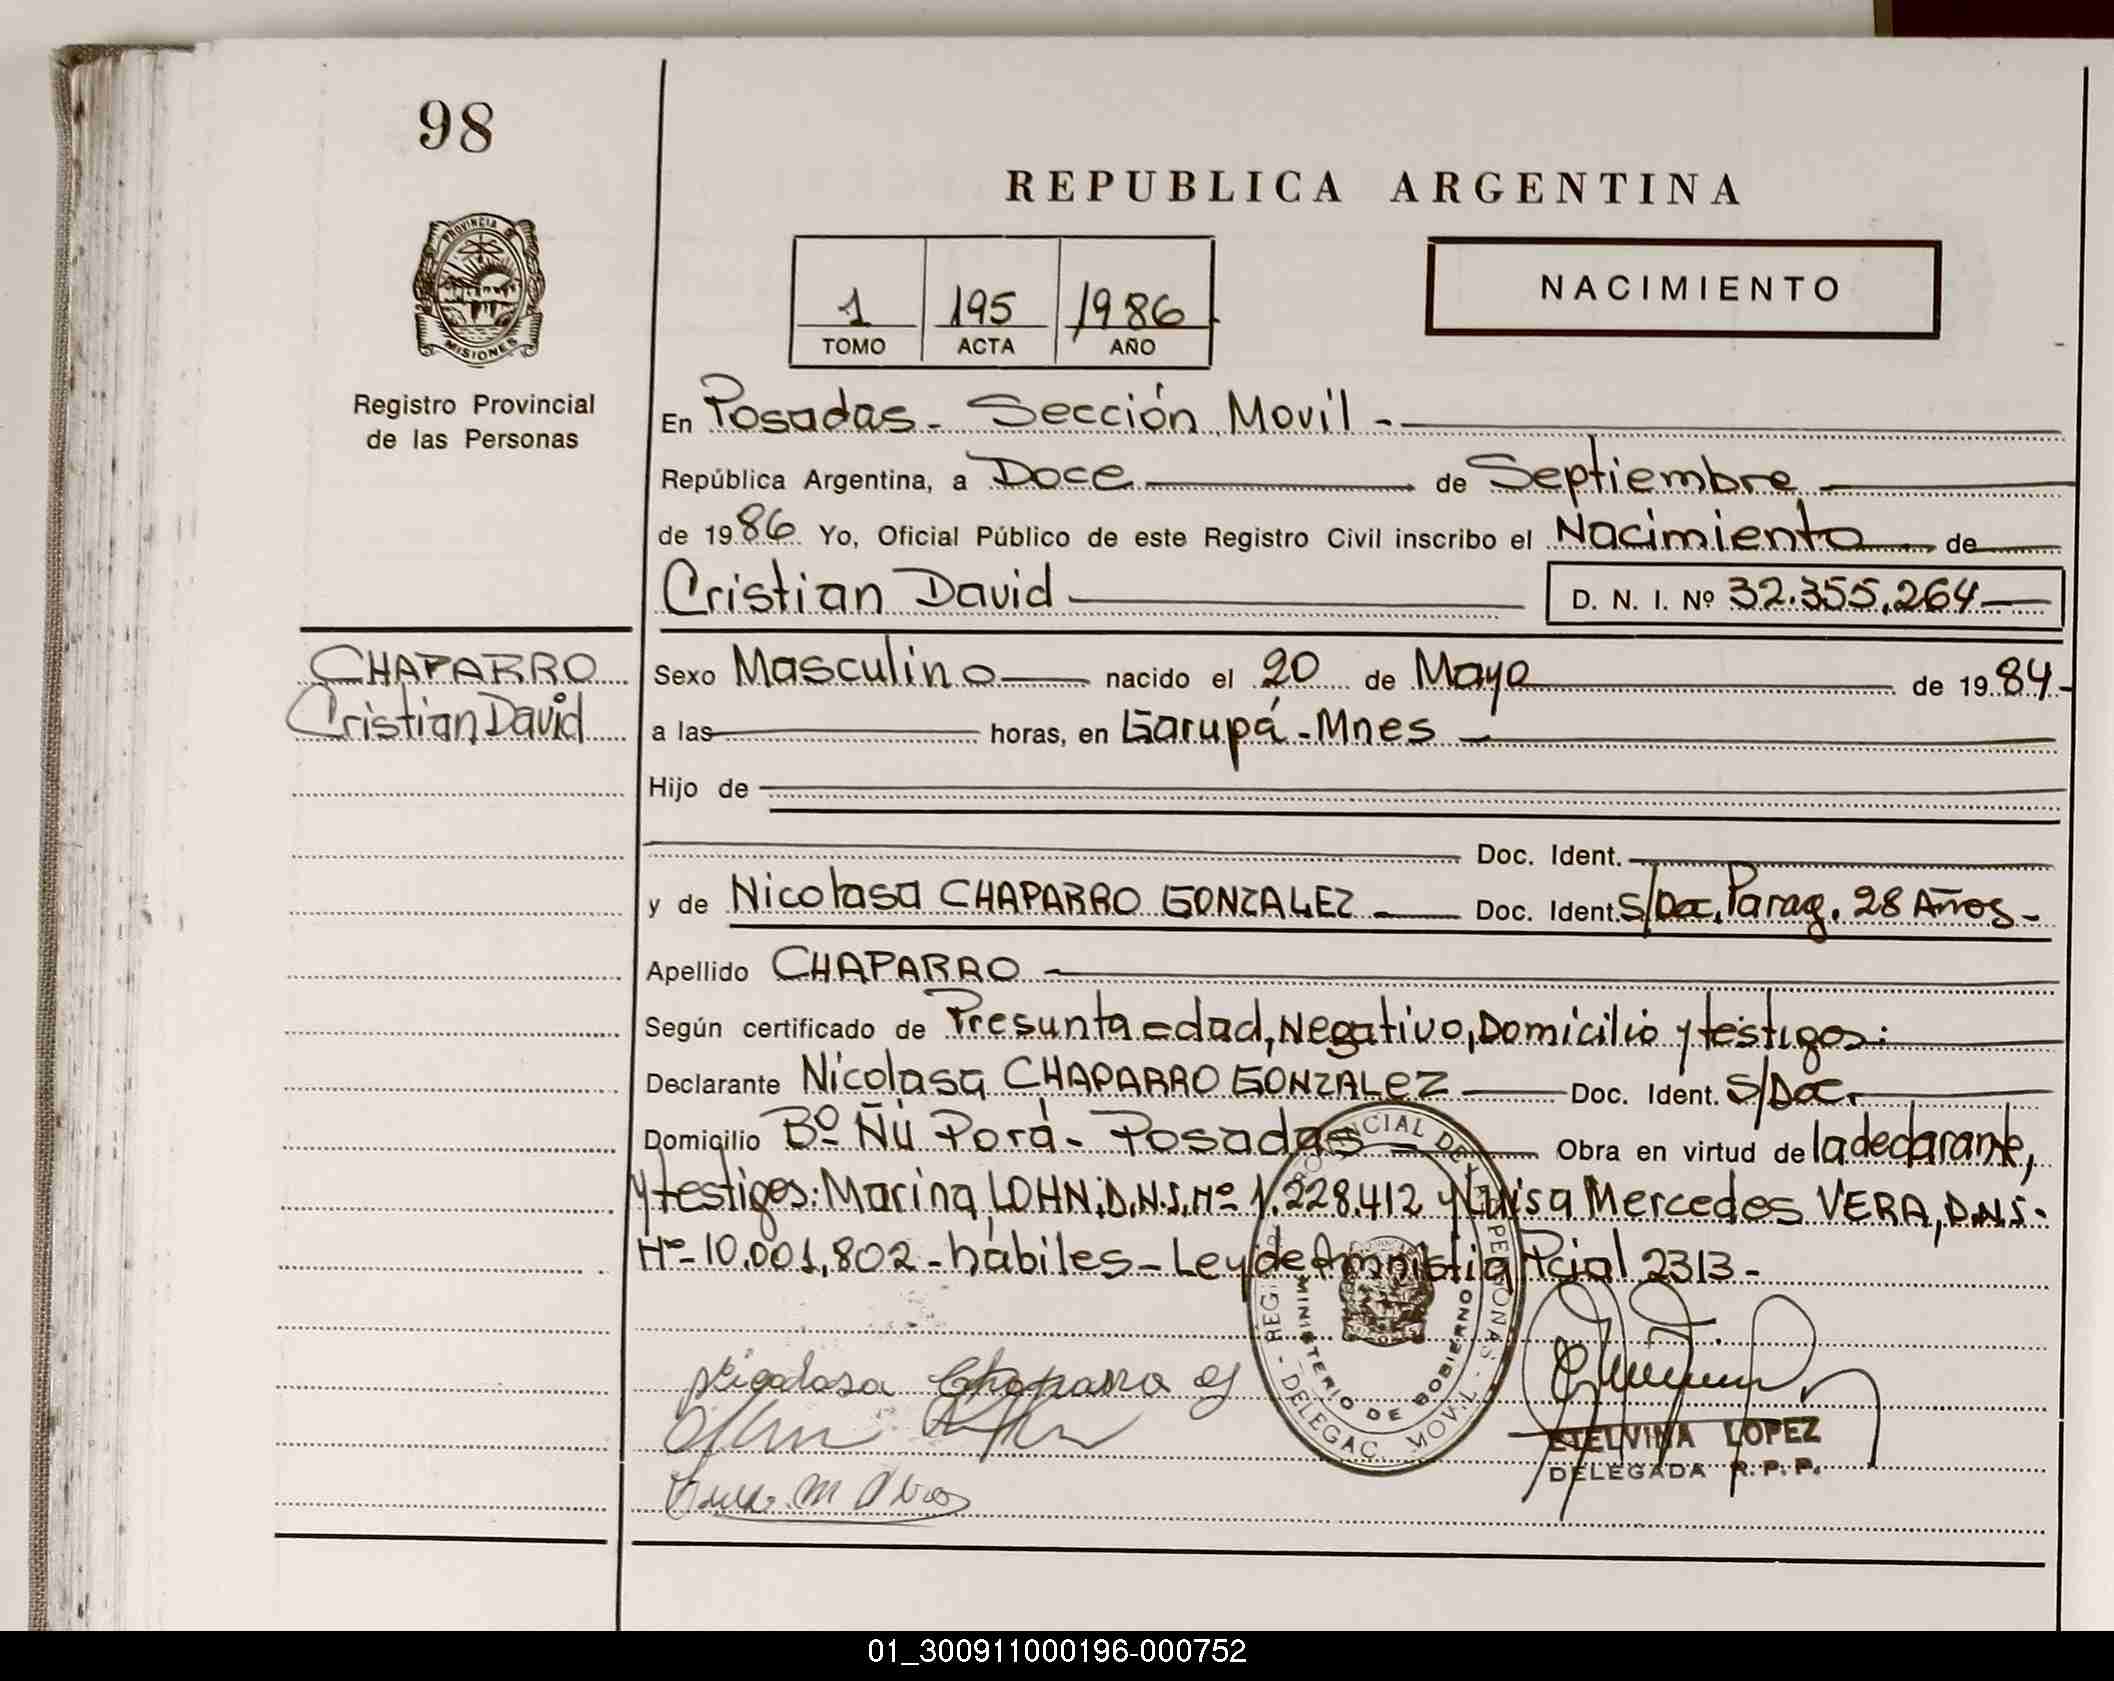 98
REPUBLICA ARGENTINA
PROVINCIA DE
MISIONES
Registro Provincial
de las Personas
1 195 1986
TOMO ACTA AÑO
NACIMIENTO
En Posadas - Sección Movil -
República Argentina, a Doce de Septiembre
de 1986 Yo, Oficial Público de este Registro Civil inscribo el Nacimiento de
Cristian David D. N. I. Nº 32.355.264
CHAPARRO
Cristian David
Sexo Masculino nacido el 20 de Mayo de 1984-
a las horas, en Garupá - Mnes
Hijo de
Doc. Ident.
y de Nicolasa CHAPARRO GONZALEZ Doc. Ident. S/Doc. Parag. 28 Años -
Apellido CHAPARRO
Según certificado de Presunta edad, Negativo, Domicilio y testigos:
Declarante Nicolasa CHAPARRO GONZALEZ Doc. Ident. S/Doc.
Domicilio Bº Ñú Porá - Posadas - Obra en virtud de la declarante,
y testigos: Marina LOHN. D.N.I. Nº 1.228.412 y Luisa Mercedes VERA, D.N.I.
Nº 10.001.802 - hábiles - Ley de Amnistia Pcial 2313 -
REGISTRO PROVINCIAL DE LAS PERSONAS - DELEGAC. MOVIL -
MINISTERIO DE GOBIERNO
Nicolasa Chaparro G
ETELVINA LOPEZ
DELEGADA R.P.P.
01_300911000196-000752